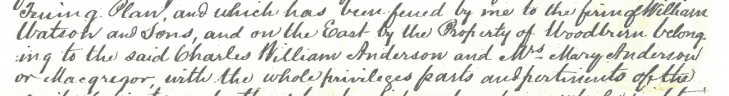 Feuing Plan, and which has been feued by me to the firm of William
Watson and Sons, and on the East by the Property of Woodburn belong
ing to the said Charles William Anderson and Mrs. Mary Anderson
or Macgregor, with the whole privileges parts and pertinents of the